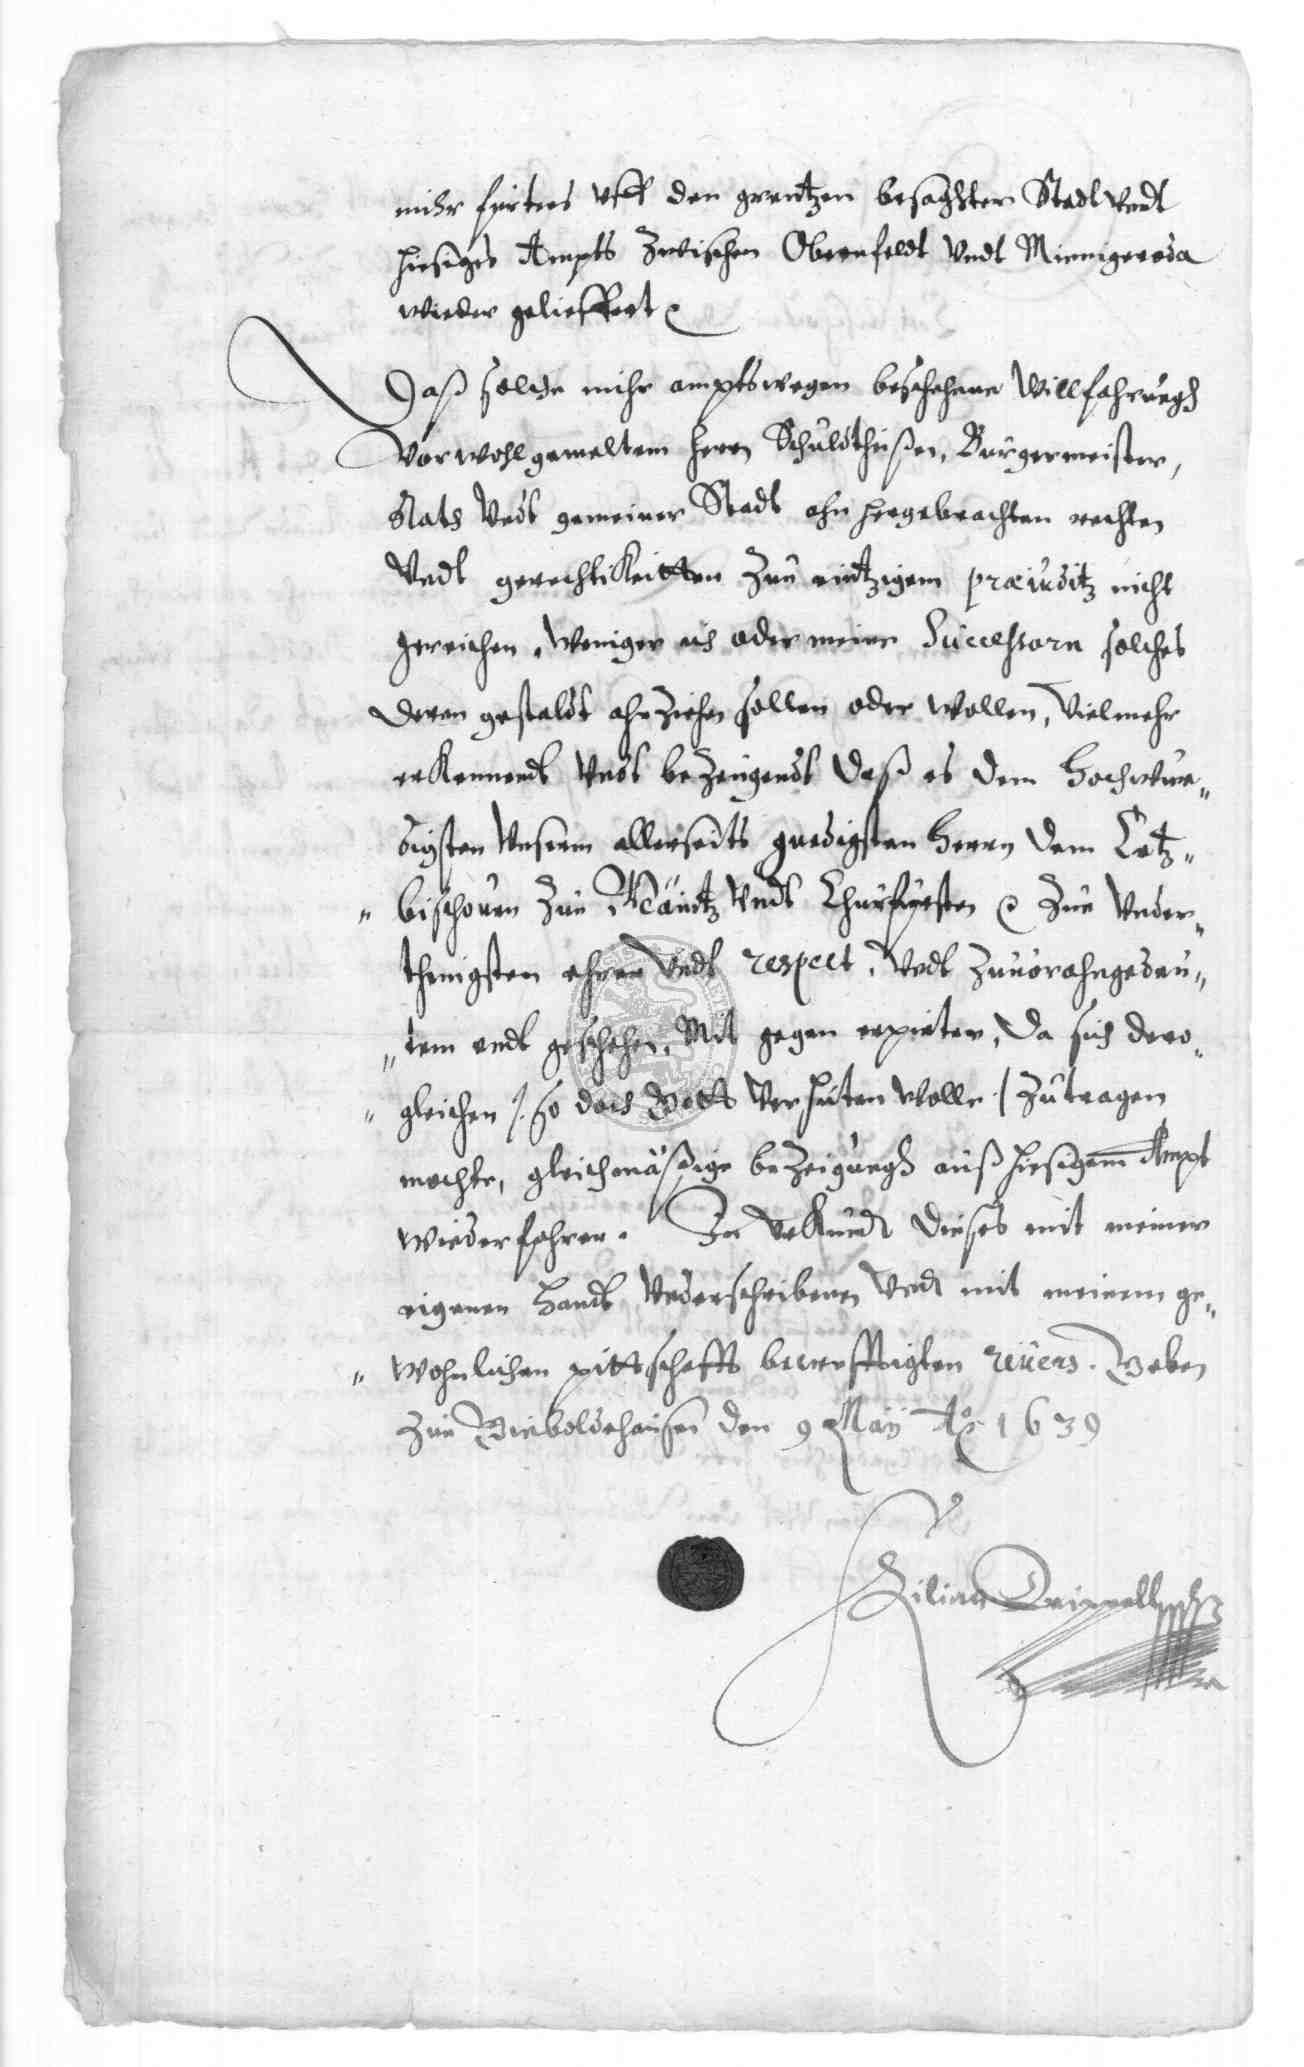 mihr fürters vff den grentzen besaghter Stadt vndt
hiesiges Ampts zwischen Obernfeldt vndt Minnigeroda
wieder gelieffert
Daß solche mihr amptswegen beschehene Willfahrungh
vorwohlgemeltem herrn Schuldtheißen, Burgermeister,
Rats vndt gemeiner Stadt ahn hergebrachten rechten
vndt gerechtikeitten zue eintzigem præiuditz nicht
gereichen, weniger ich oder meine Successorn solches
deren gestaldt ahnziehen sollen oder wollen, vielmehr
erkennendt vndt bezeugendt daß es dem Hochwür„
digsten vnserm allerseits gnedigsten Herrn dem Ertz„
„ bischouen zue Mäintz vndt Churfürsten zue vnder„
thenigsten ehren vndt respect, vndt zuuorahngedeu„
„ tem endt geschehen, Mit gegen erpieten, da sich dero„
„ gleichen /: so doch Gott verhüten wolle :/ zutragen
mochte, gleichmäßige bezeigungh auß hiesigem Ampt
wiederfahren. In vrkundt dieses mit meiner
eigenen Handt vnderschribenen vndt mit meinem ge„
„ wohnlichen pittschafft becreffttigten reuers. Geben
zue Gieboldehausen den 9 Maÿ Ao 1639
Kilian